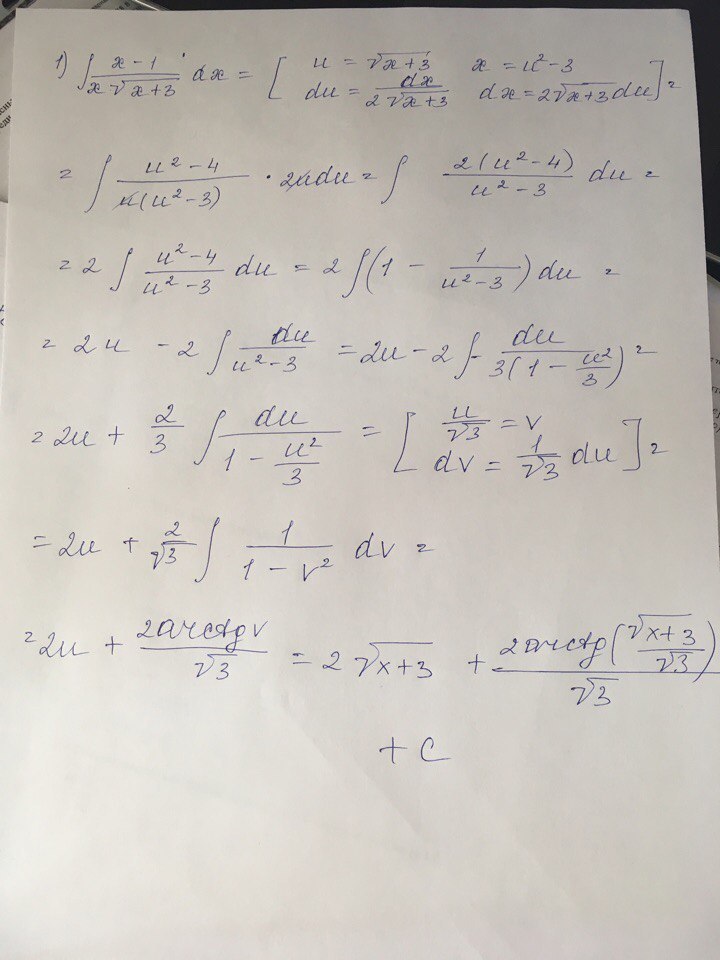 1) ∫ (x - 1)/(x √(x+3)) dx = [ u = √(x+3)    x = u² - 3
du = dx/(2√(x+3))    dx = 2√(x+3) du ] =
= ∫ (u² - 4)/(u(u² - 3)) · 2u du = ∫ 2(u² - 4)/(u² - 3) du =
= 2 ∫ (u² - 4)/(u² - 3) du = 2 ∫ (1 - 1/(u² - 3)) du =
= 2u - 2 ∫ du/(u² - 3) = 2u - 2 ∫ - du/(3(1 - u²/3)) =
= 2u + 2/3 ∫ du/(1 - u²/3) = [ u/√3 = v
dv = 1/√3 du ] =
= 2u + 2/√3 ∫ 1/(1 - v²) dv =
= 2u + 2arctg v/√3 = 2√(x+3) + 2arctg(√(x+3)/√3)/√3
+ C